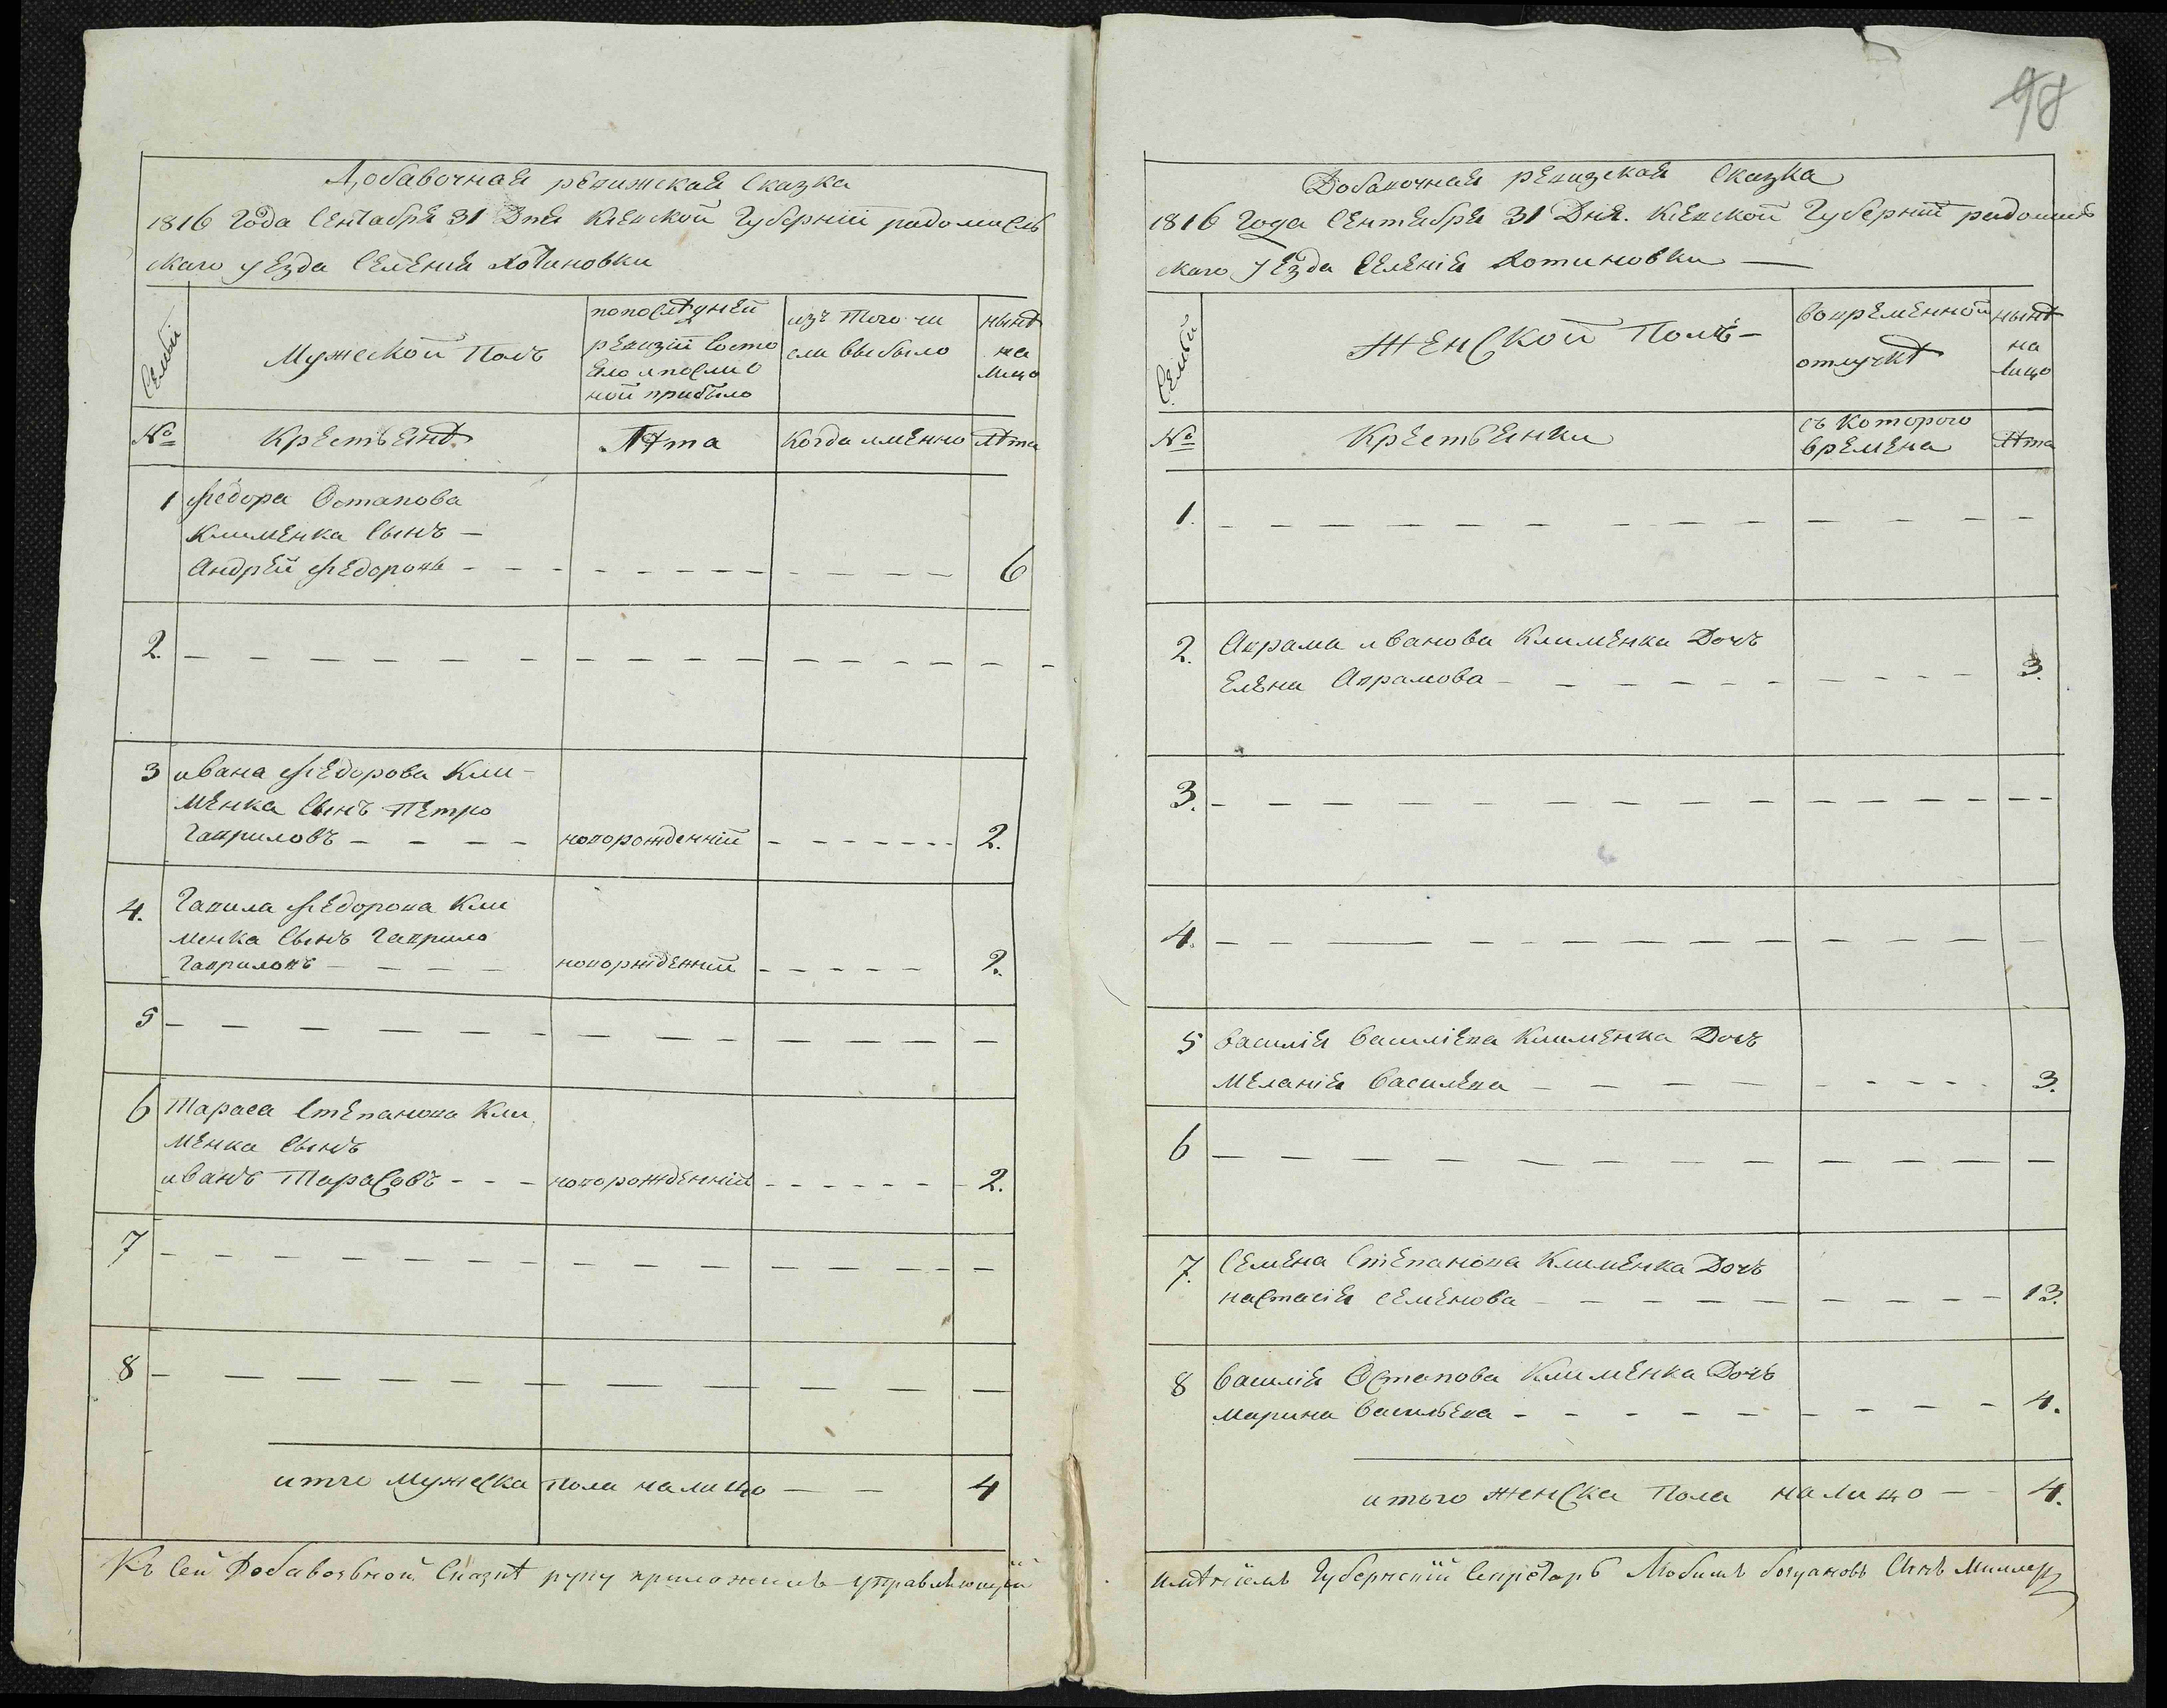 Добавочная ревижская сказка
1816 года сентабря 31 дня Киевской губернии радомисль
скаго уезда селения Хотиновки
Семьи
Мужеской полъ
попоследней
ревизии состо
яло и после о
ной прибыло
изъ того чи
сла выбыло
ныне
на
лицо
№
Крестьяне
Лета
когда именно
Лета
1 Федора Остапова
Клименка сынъ —
Андрей Федоровъ - - - 6
2.
3 ивана Федорова Кли-
менка сынъ Петро
Гавриловъ - - - - новорожденний - - - 2.
4. Гаврила Федорова Кли
менка сынъ Гаврило
Гавриловъ - - - - новорожденний - - - 2.
5
6 Тараса Степанова Кли
менка сынъ
иванъ Тарасовъ - - - новорожденний - - - 2.
7
8
итого мужеска пола налицо — — 4
Къ сей добавочьной сказке руку приложилъ управляющий
98
Добавочная ревизская сказка
1816 года сентября 31 дня. Киевской губернии радомисль
скаго уезда селения Хотиновки —
Семьи
Женской полъ —
вовременной
отлучке
ныне
на
лицо
№
Крестьянки
съ которого
времена
Лета
1.
2. Аврама иванова Клименка дочъ
Елена Аврамова - - - 3.
3.
4.
5 василия василиева Клименка дочъ
Мелания василева - - - 3.
6
7. Семена Степанова Клименка дочъ
настасия семенова - - - 13.
8 василия Остапова Клименка дочъ
марина васильева - - - 4.
итого женска пола налицо — - 4.
имениемъ Губернский секретарь Любимъ богдановъ сынъ Миллеръ